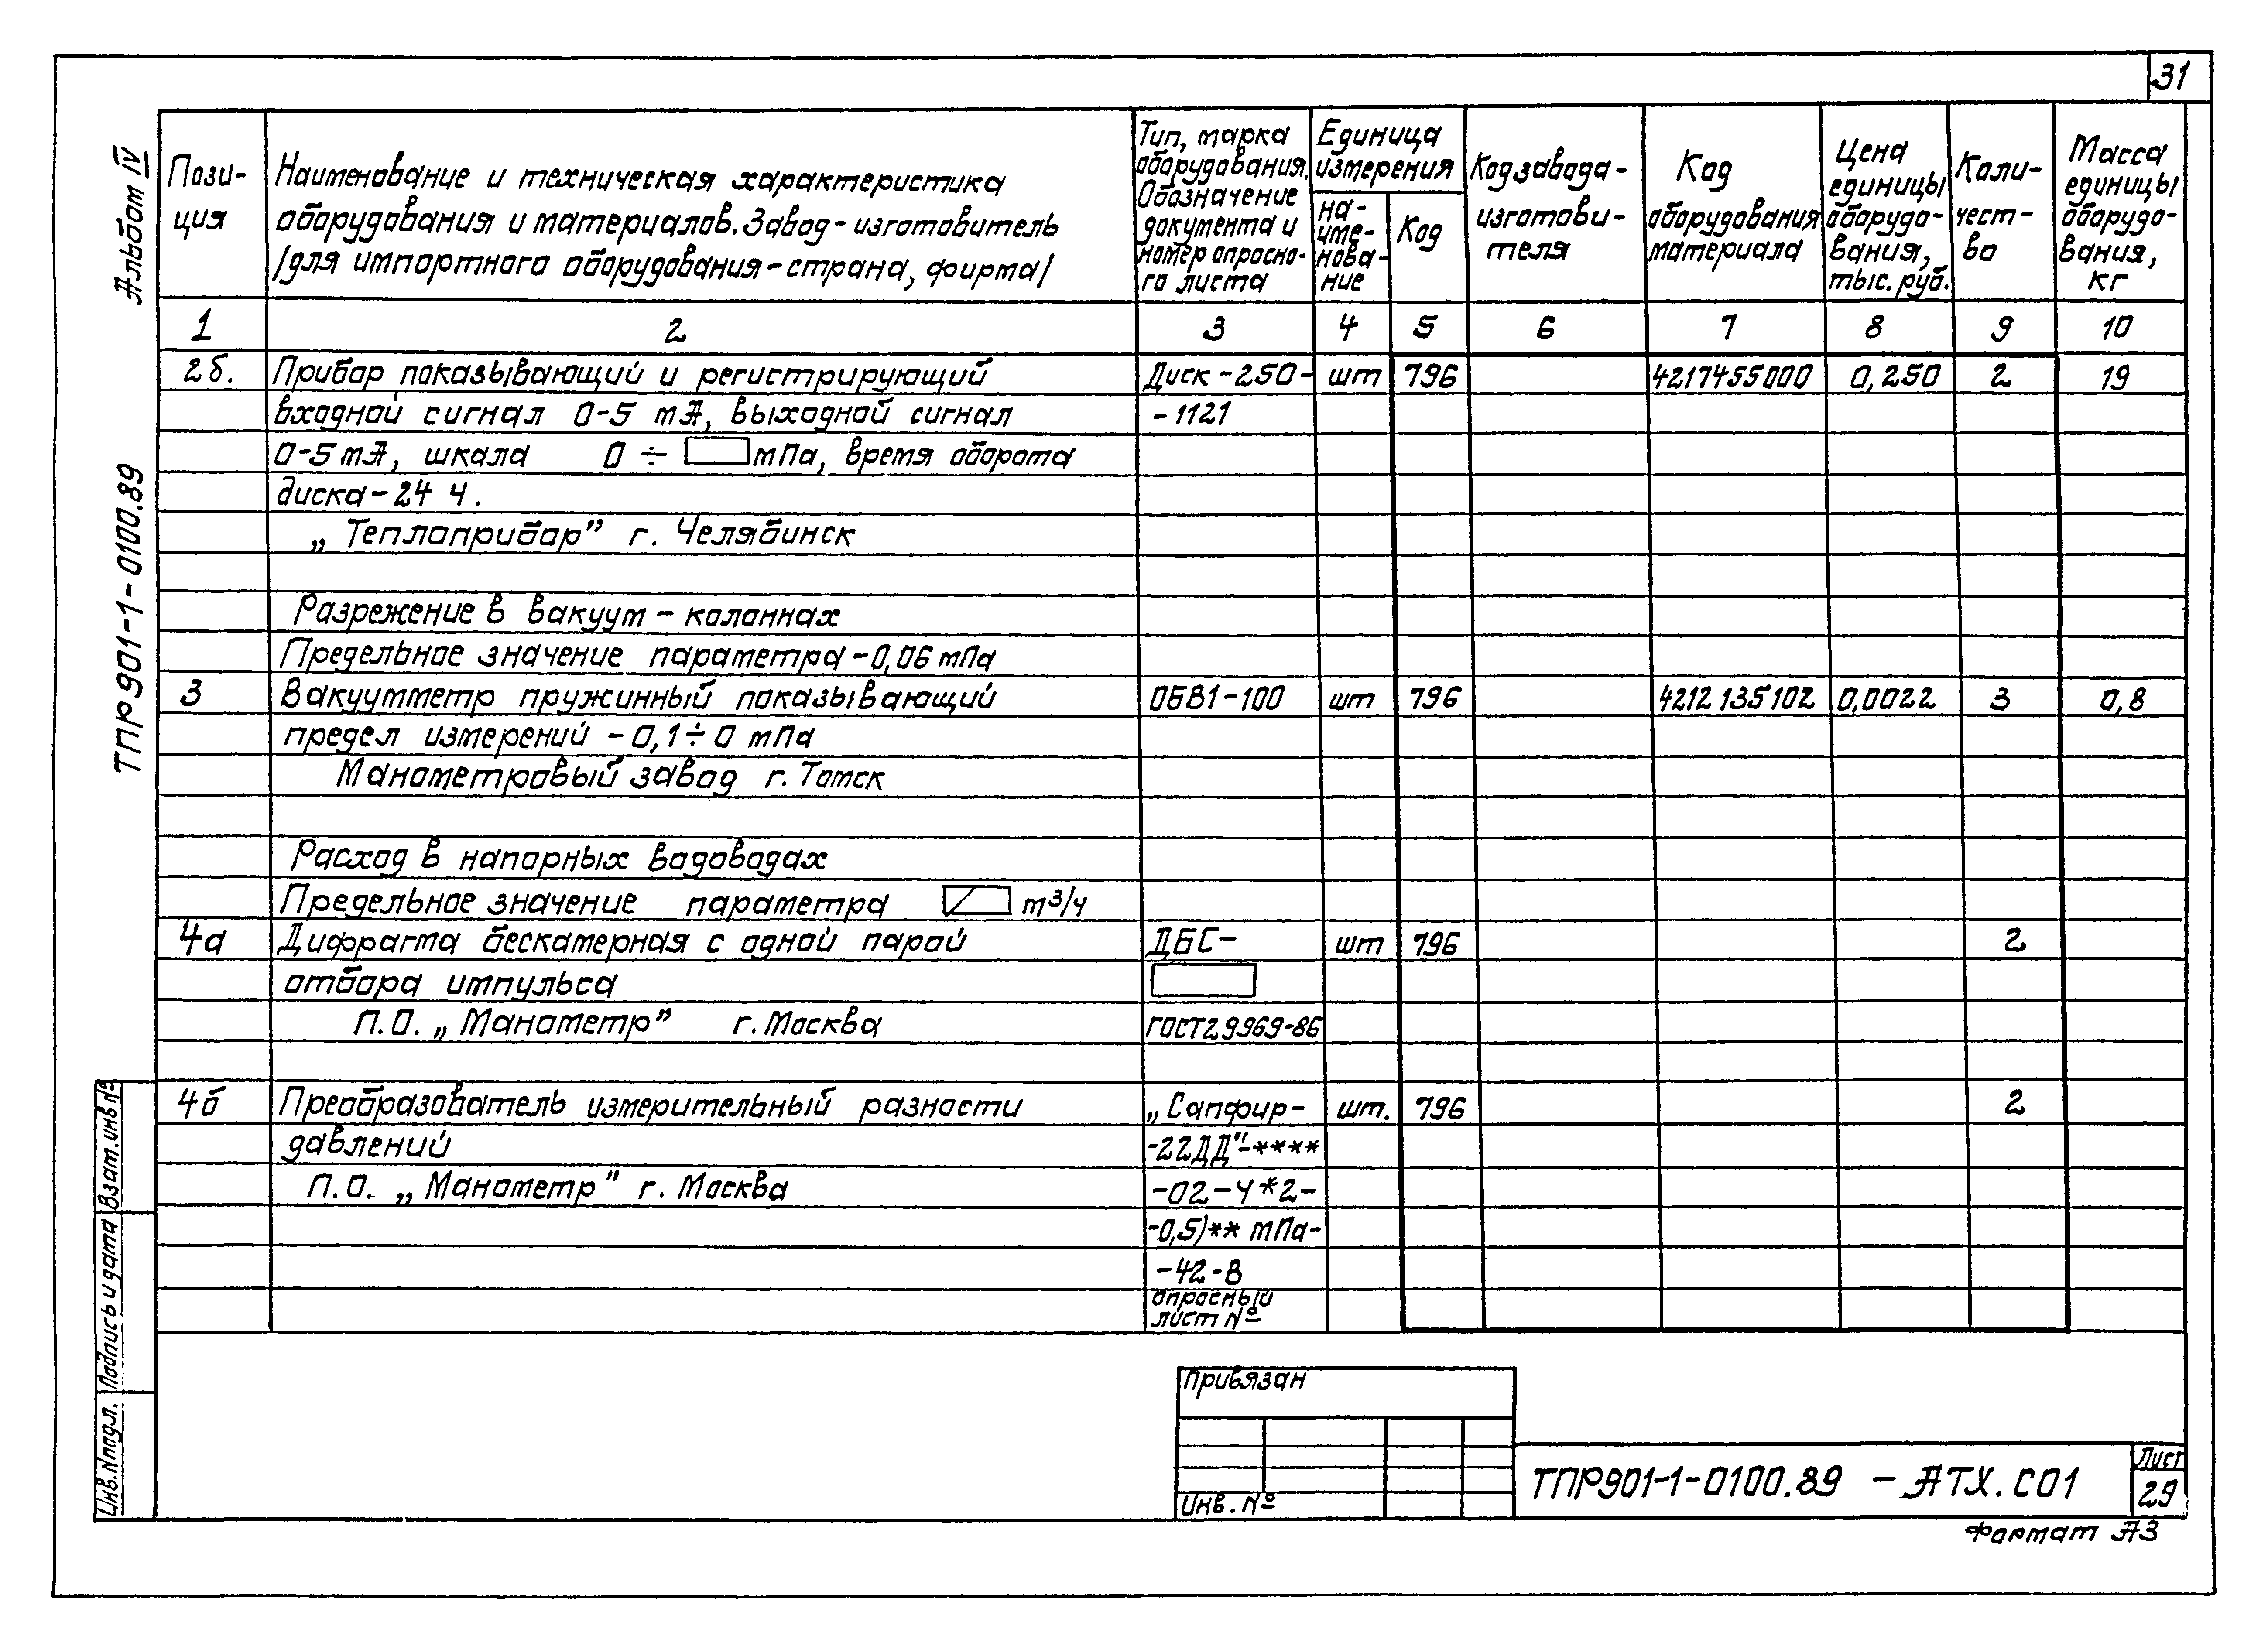 31
Альбом IV
ТПР 901-1-0100.89
Пози-
ция
Наименование и техническая характеристика
оборудования и материалов. Завод-изготовитель
/для импортного оборудования-страна, фирма/
Тип, марка
оборудования.
Обозначение
документа и
номер опросно-
го листа
Единица
измерения
на-
име-
нова-
ние
Код
Код завода-
изготови-
теля
Код
оборудования
материала
Цена
единицы
оборудо-
вания,
тыс. руб.
Коли-
чест-
во
Масса
единицы
оборудо-
вания,
кг
1 2 3 4 5 6 7 8 9 10
2б. Прибор показывающий и регистрирующий Диск-250- шт 796 4217455000 0,250 2 19
входной сигнал 0-5 mA, выходной сигнал -1121
0-5 mA, шкала 0 ÷ мПа, время оборота
диска-24 ч.
„Теплоприбор” г. Челябинск
Разрежение в вакуум-колоннах
Предельное значение параметра -0,06 мПа
3 Вакуумметр пружинный показывающий ОБВ1-100 шт 796 4212 135102 0,0022 3 0,8
предел измерений -0,1÷0 мПа
Манометровый завод г. Томск
Расход в напорных водоводах
Предельное значение параметра м³/ч
4а Дифрагма бескамерная с одной парой ДБС- шт 796 2
отбора импульса
П.О. „Манометр” г. Москва ГОСТ29969-86
4б Преобразователь измерительный разности „Сапфир- шт. 796 2
давлений -22ДД"-****
П.О. „Манометр" г. Москва -02-У*2-
-0,5)** мПа-
-42-В
опросный
лист №
Взам. инв №
Подпись и дата
Инв. № подл.
Привязан
Инв. №
ТПР901-1-0100.89 - АТХ.С01
Лист
29
Формат А3